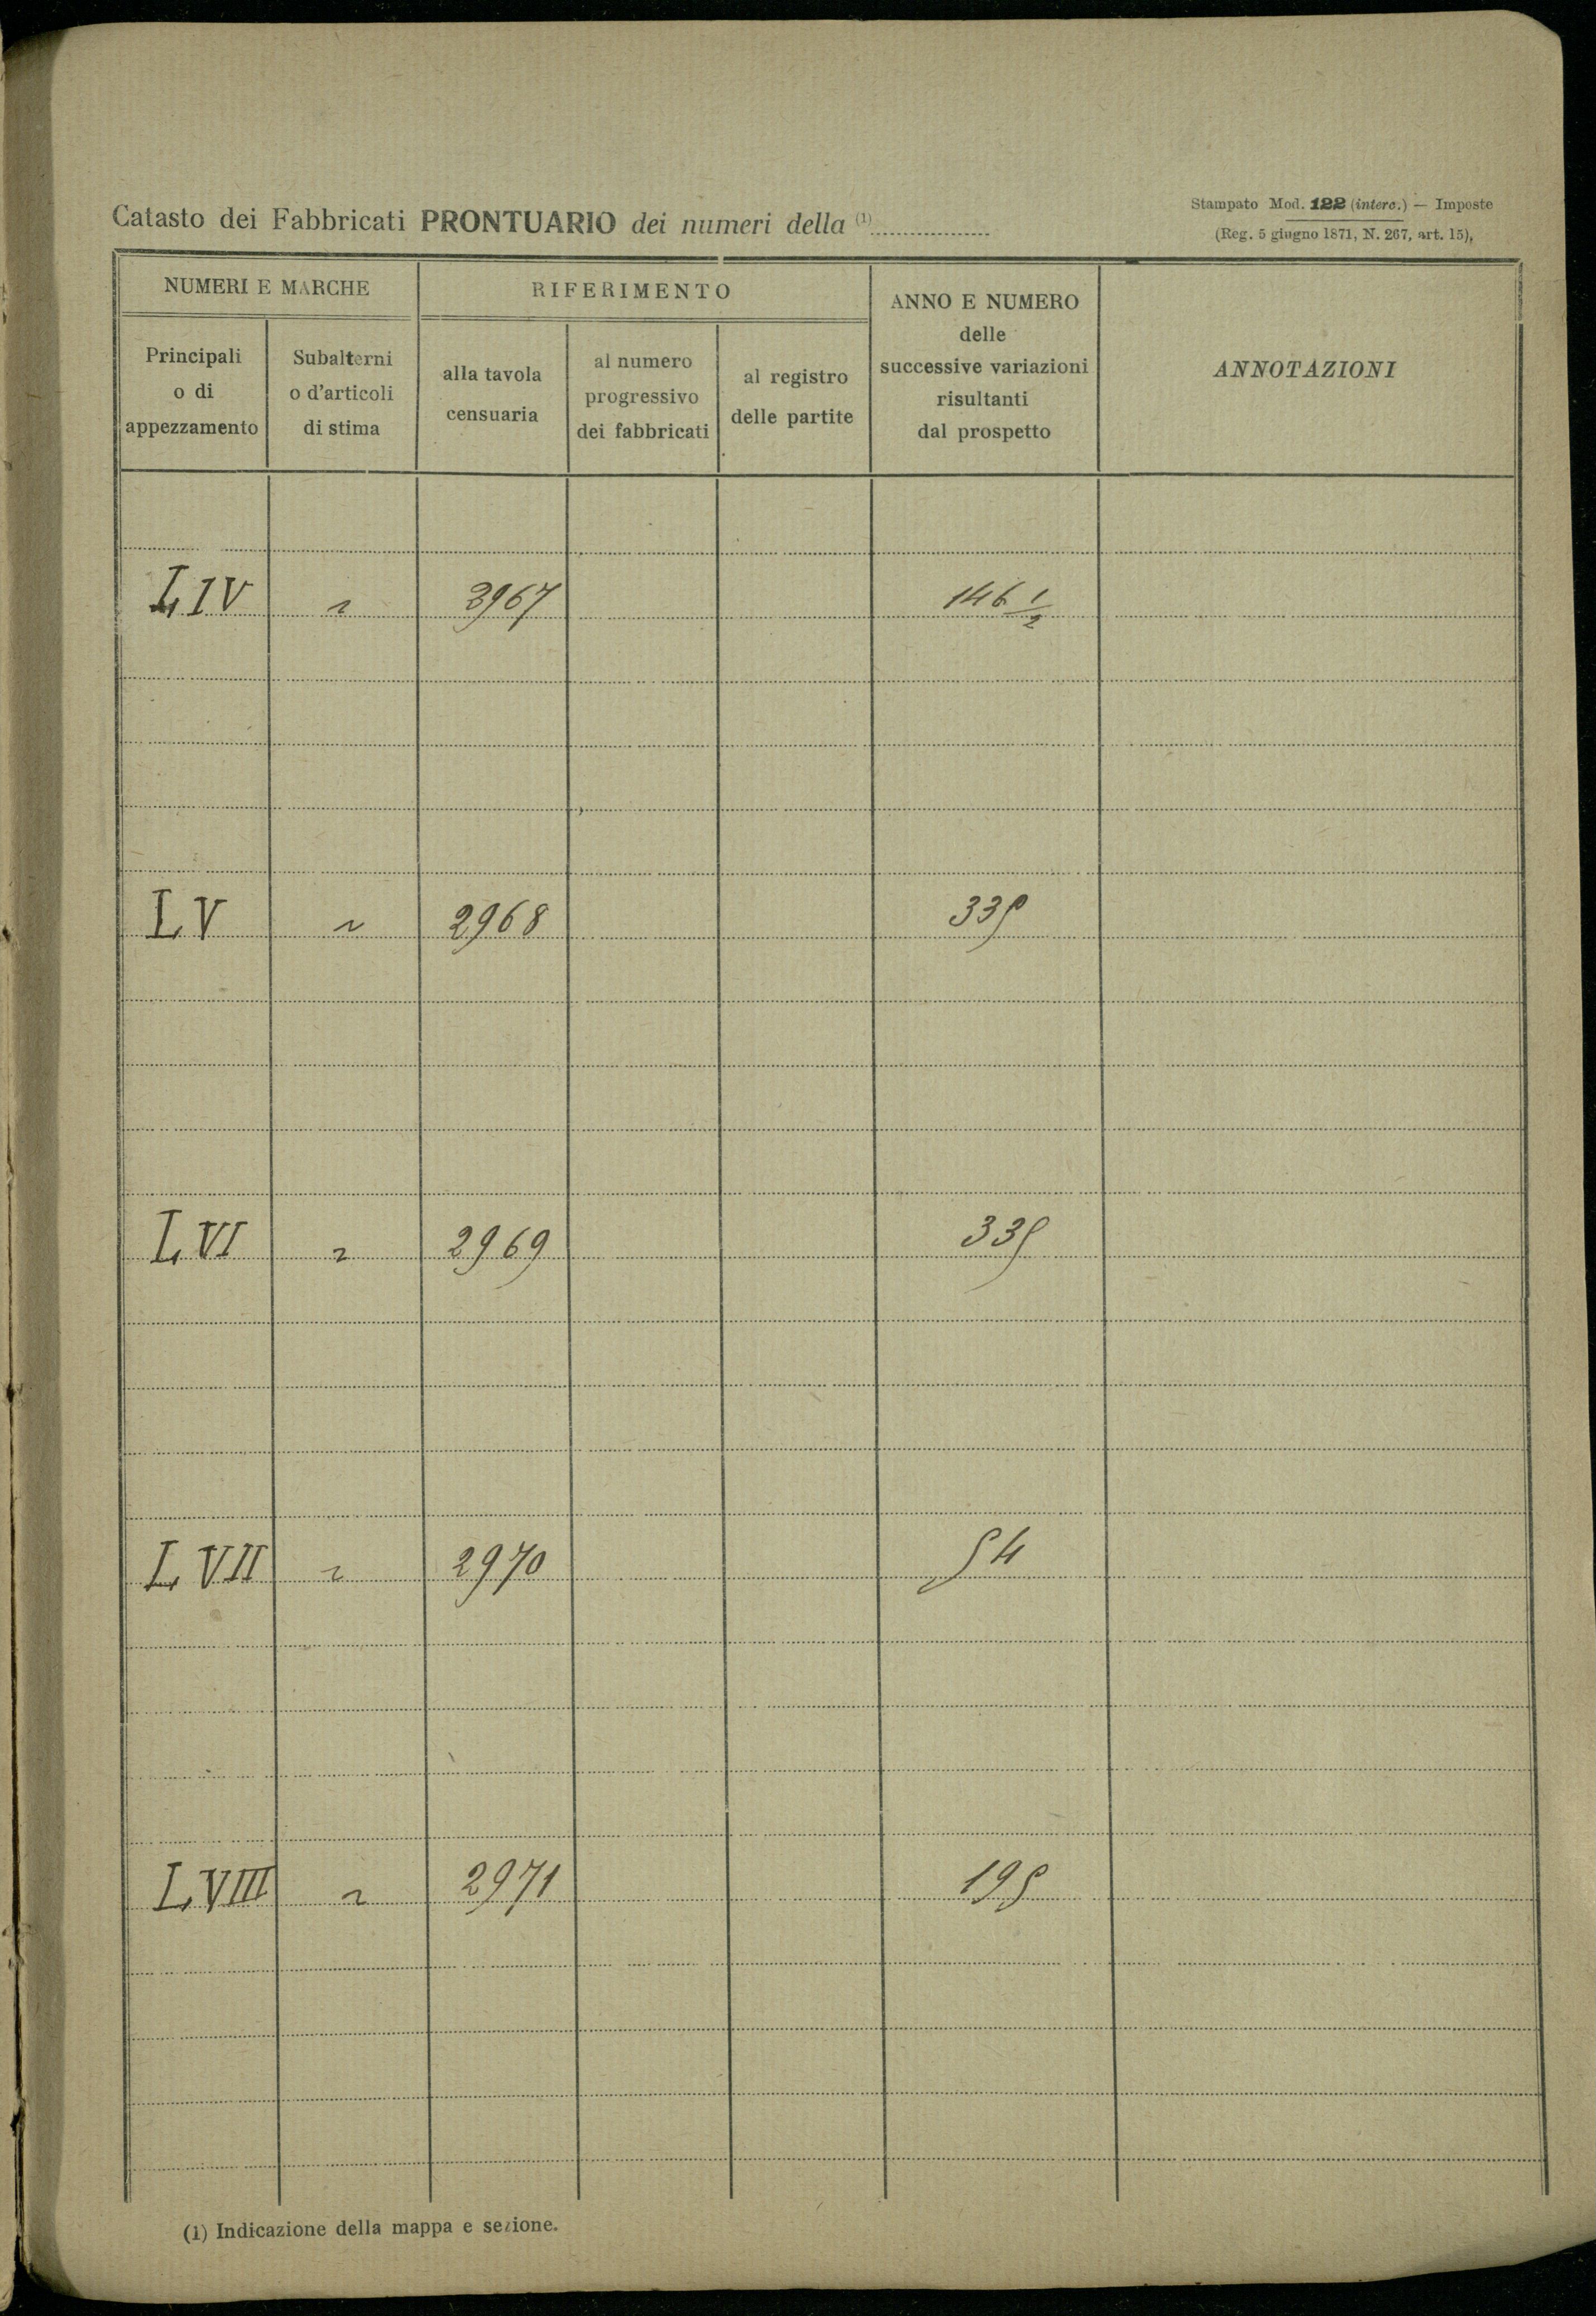 Catasto dei Fabbricati PRONTUARIO dei numeri della (1)
Stampato Mod. 122 (interc.) — Imposte
(Reg. 5 giugno 1871, N. 267, art. 15),
NUMERI E MARCHE
RIFERIMENTO
ANNO E NUMERO
delle
successive variazioni
risultanti
dal prospetto
ANNOTAZIONI
Principali
o di
appezzamento
Subalterni
o d'articoli
di stima
alla tavola
censuaria
al numero
progressivo
dei fabbricati
al registro
delle partite
LIV 3967 146 1/2
LV 2968 335
LVI 2969 335
LVII 2970 54
LVIII 2971 195
(1) Indicazione della mappa e sezione.